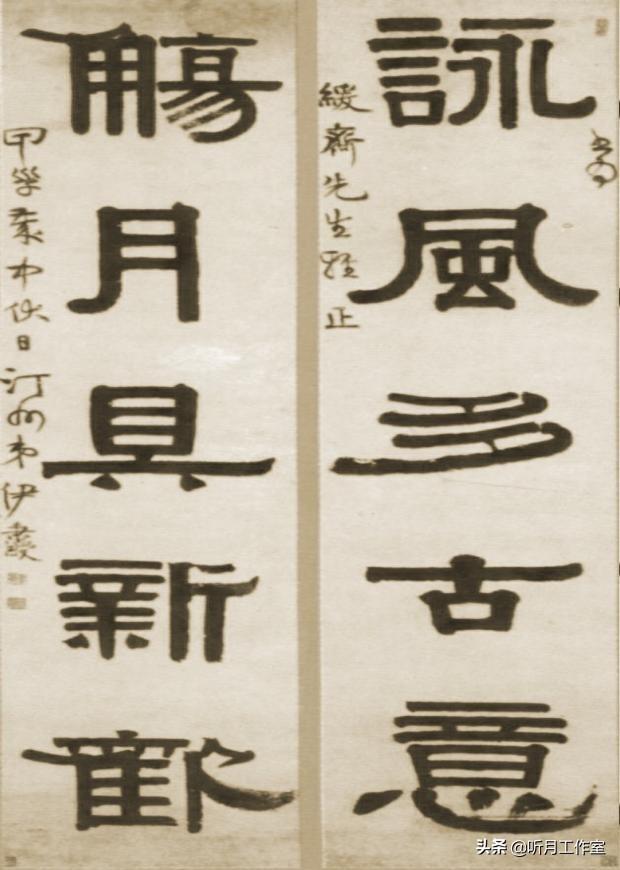 詠風多古意
齋先生正
觴月具新歡
甲歲中伏日汀州弟伊
头条 @听月工作室